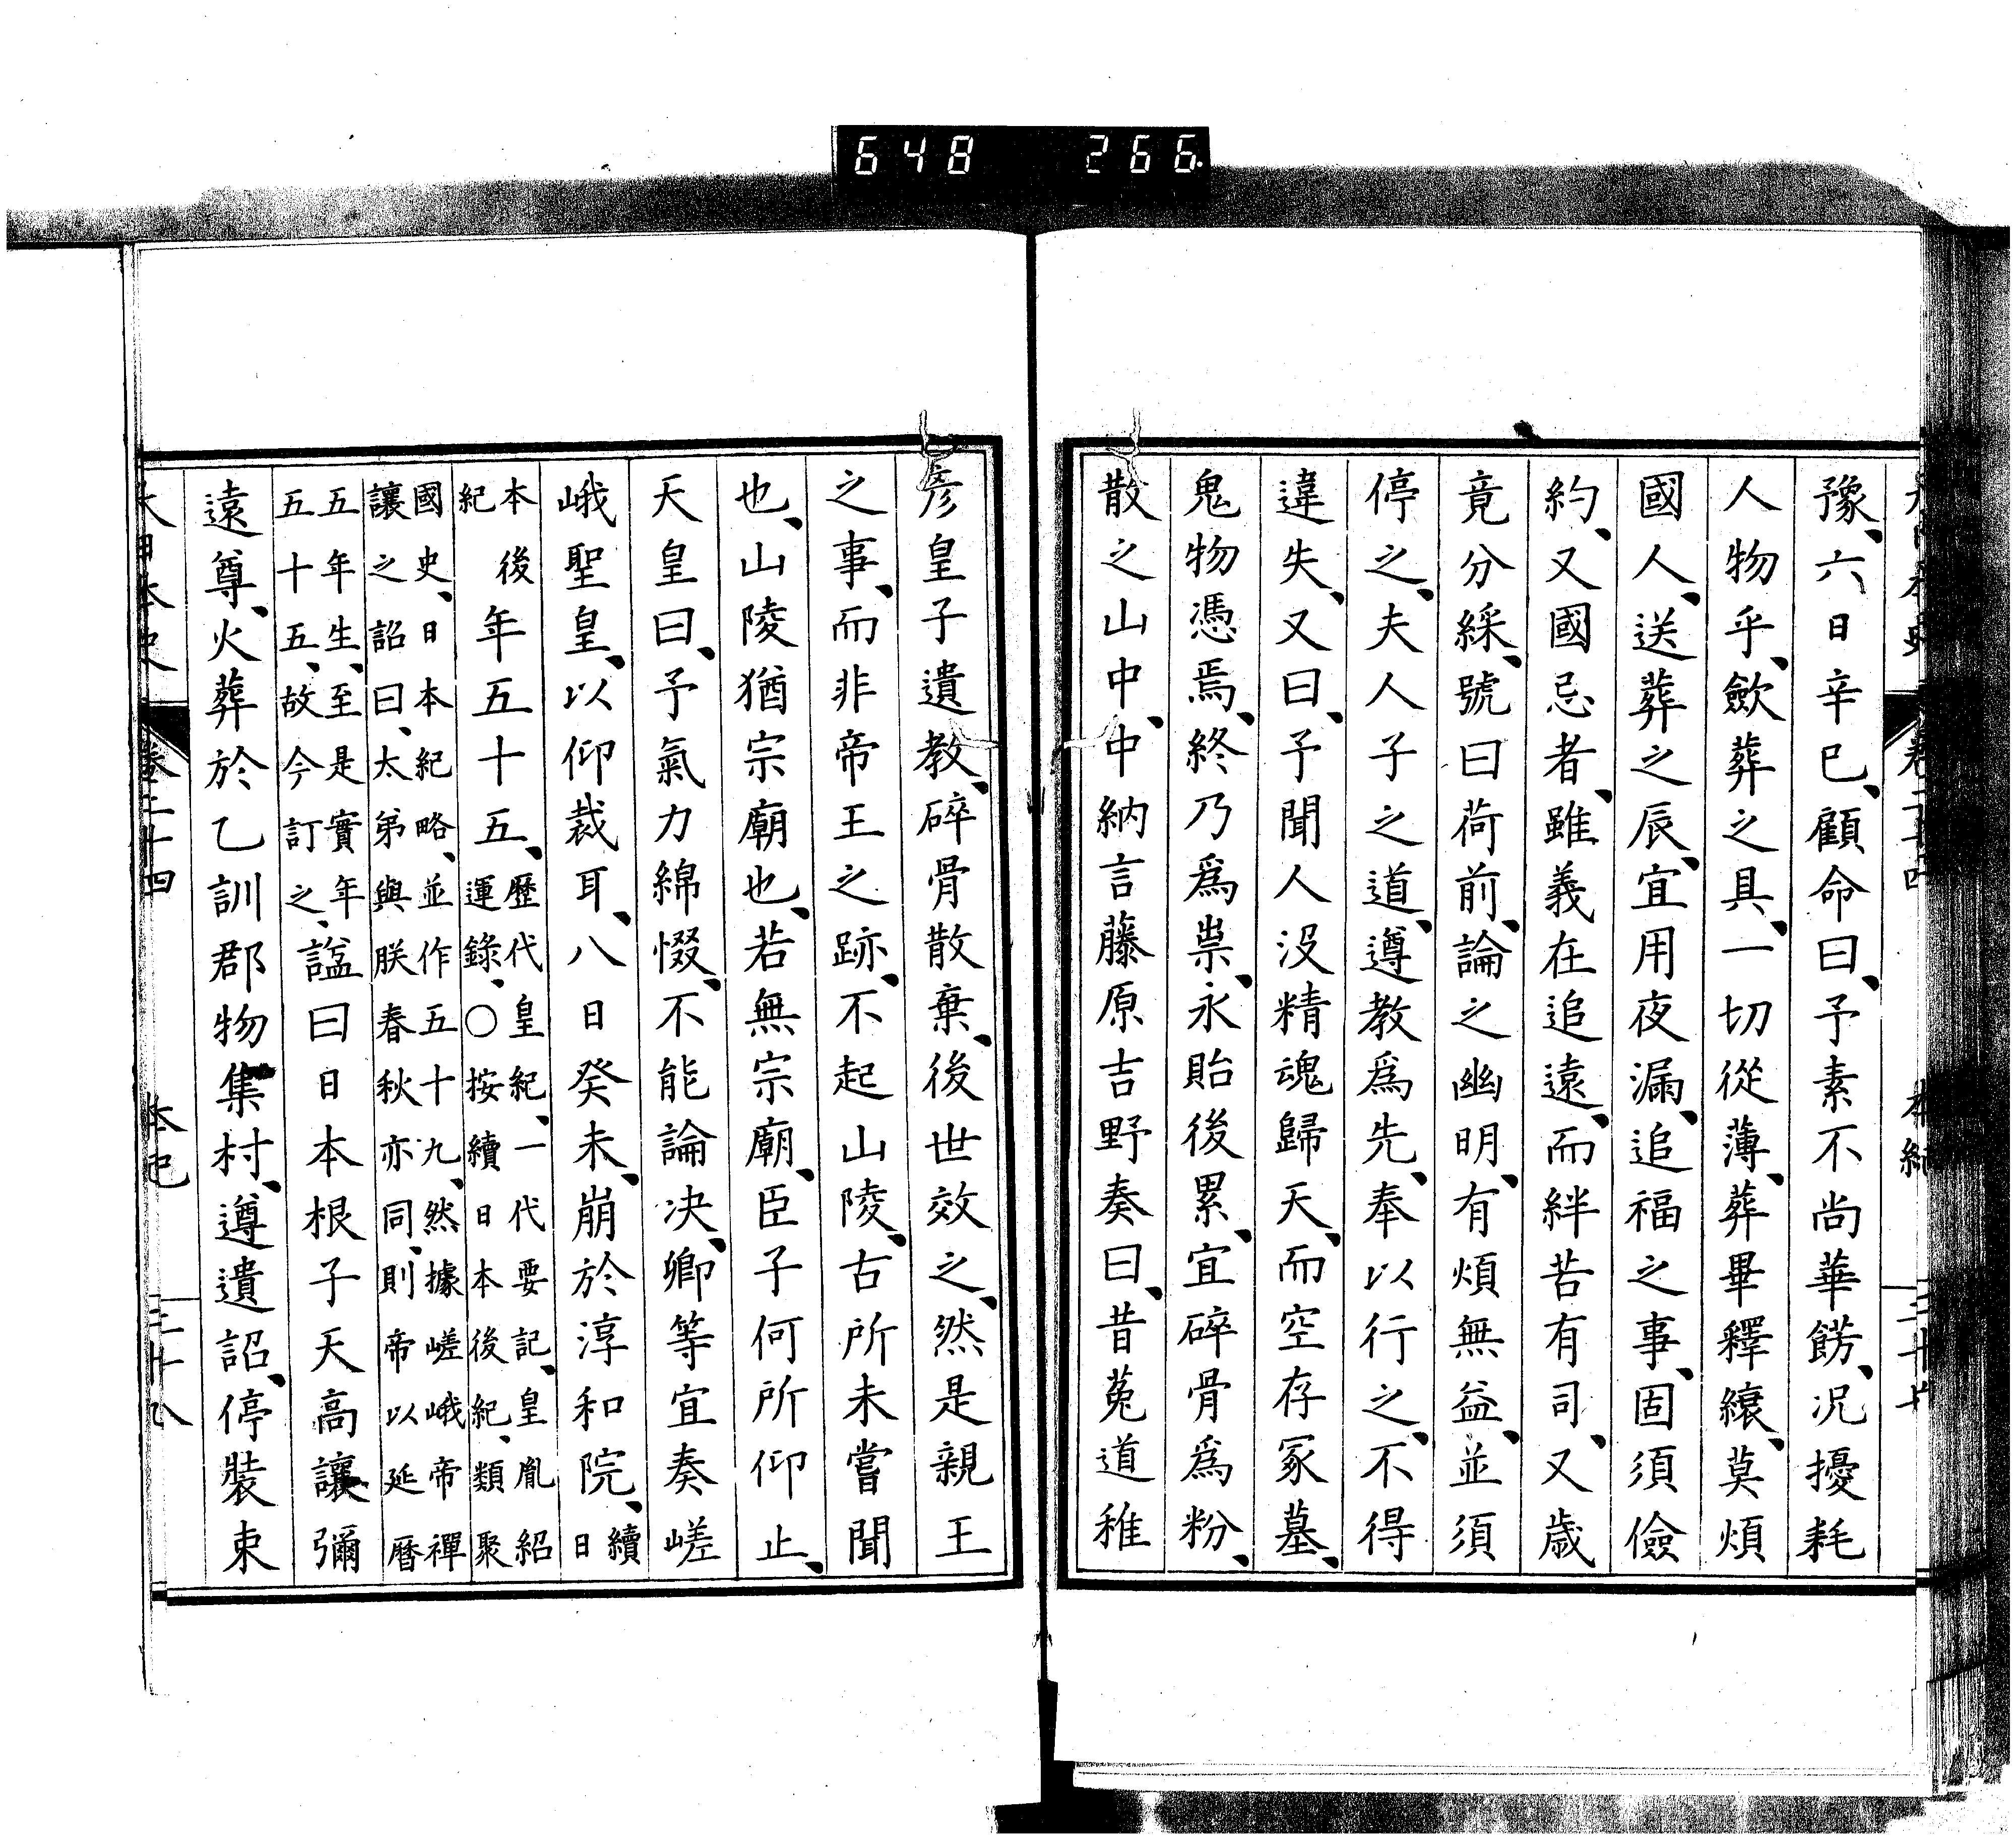 648 266
豫、六日辛巳、顧命曰、予素不尚華餝、況擾耗
人物乎、歛葬之具、一切從薄、葬畢釋縗、莫煩
國人、送葬之辰、宜用夜漏、追福之事、固須儉
約、又國忌者、雖義在追遠、而絆苦有司、又歳
竟分綵、號曰荷前、論之幽明、有煩無益、並須
停之、夫人子之道、遵教爲先、奉以行之、不得
違失、又曰、予聞人沒精魂歸天、而空存冢墓、
鬼物憑焉、終乃爲祟、永貽後累、宜碎骨爲粉、
散之山中、中納言藤原吉野奏曰、昔菟道稚
彦皇子遺教、碎骨散棄、後世效之、然是親王
之事、而非帝王之跡、不起山陵、古所未嘗聞
也、山陵猶宗廟也、若無宗廟、臣子何所仰止、
天皇曰、予氣力綿惙、不能論决、卿等宜奏嵯
峨聖皇、以仰裁耳、八日癸未、崩於淳和院、續日
本後紀年五十五、歷代皇紀、一代要記、皇胤紹
運錄、○按續日本後紀、類聚
國史、日本紀略、並作五十九、然據嵯峨帝禪
讓之詔曰、太弟與朕春秋亦同、則帝以延曆
五年生、至是實年
五十五、故今訂之、諡曰日本根子天高讓彌
遠尊、火葬於乙訓郡物集村、遵遺詔、停裝束
大日本史 卷三十四 本紀